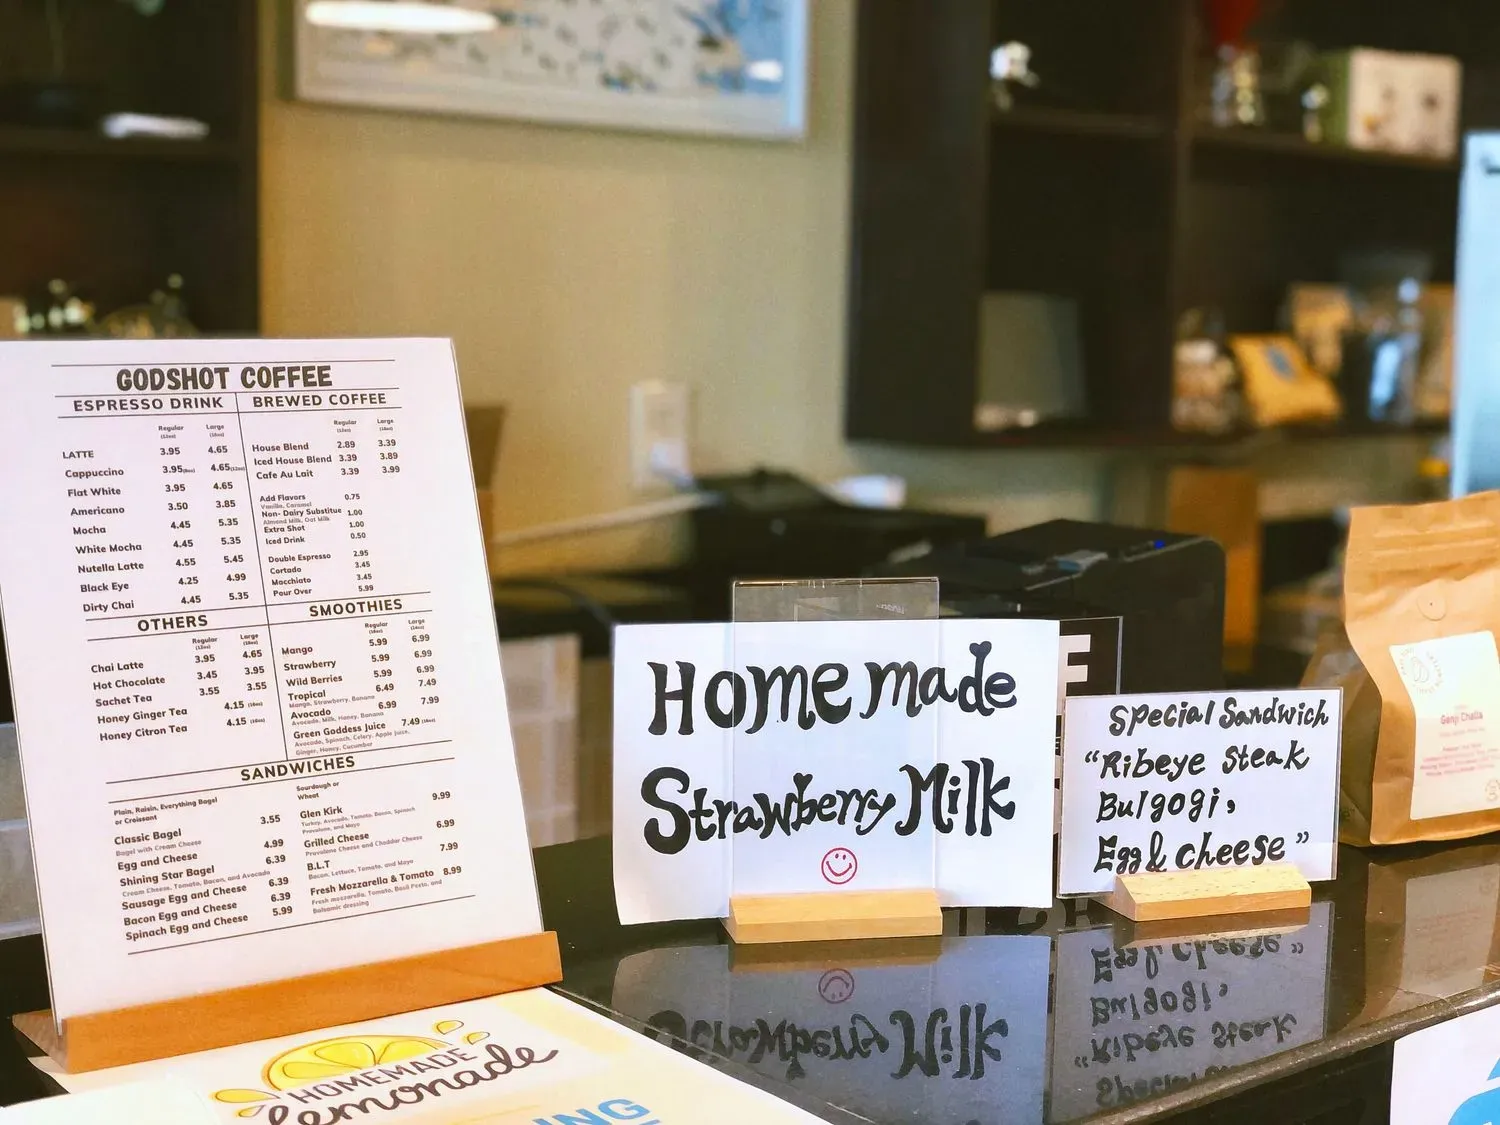 GODSHOT COFFEE
ESPRESSO DRINK
Regular Large
(12oz) (16oz)
LATTE 3.95 4.65
Cappuccino 3.95(8oz) 4.65(12oz)
Flat White 3.95 4.65
Americano 3.50 3.85
Mocha 4.45 5.35
White Mocha 4.45 5.35
Nutella Latte 4.55 5.45
Black Eye 4.25 4.99
Dirty Chai 4.45 5.35
BREWED COFFEE
Regular Large
(12oz) (16oz)
House Blend 2.89 3.39
Iced House Blend 3.39 3.89
Cafe Au Lait 3.39 3.99
Add Flavors 0.75
Vanilla, Caramel
Non- Dairy Substitue 1.00
Almond Milk, Oat Milk
Extra Shot 1.00
Iced Drink 0.50
Double Espresso 2.95
Cortado 3.45
Macchiato 3.45
Pour Over 5.99
OTHERS
Regular Large
(12oz) (16oz)
Chai Latte 3.95 4.65
Hot Chocolate 3.45 3.95
Sachet Tea 3.55 3.55
Honey Ginger Tea 4.15 (16oz)
Honey Citron Tea 4.15 (16oz)
SMOOTHIES
Regular Large
Mango 5.99 6.99
Strawberry 5.99 6.99
Wild Berries 5.99 6.99
Tropical 6.49 7.49
Mango, Strawberry, Banana
Avocado 6.99 7.99
Avocado, Milk, Honey, Banana
Green Goddess Juice 7.49 (16oz)
Avocado, Spinach, Celery, Apple Juice,
Ginger, Honey, Cucumber
SANDWICHES
Plain, Raisin, Everything Bagel
or Croissant
Classic Bagel 3.55
Bagel with Cream Cheese
Egg and Cheese 4.99
Shining Star Bagel 6.39
Cream Cheese, Tomato, Bacon, and Avocado
Sausage Egg and Cheese 6.39
Bacon Egg and Cheese 6.39
Spinach Egg and Cheese 5.99
Sourdough or
Wheat
Glen Kirk 9.99
Turkey, Avocado, Tomato, Bacon, Spinach
Provalone, and Mayo
Grilled Cheese 6.99
Provalone Cheese and Cheddar Cheese
B.L.T 7.99
Bacon, Lettuce, Tomato, and Mayo
Fresh Mozzarella & Tomato 8.99
Fresh mozzarella, Tomato, Basil Pesto, and
Balsamic dressing
HOMEMADE
lemonade
Homemade
Strawberry Milk
Special Sandwich
"Ribeye Steak
Bulgogi,
Egg & cheese"
Genji Challa